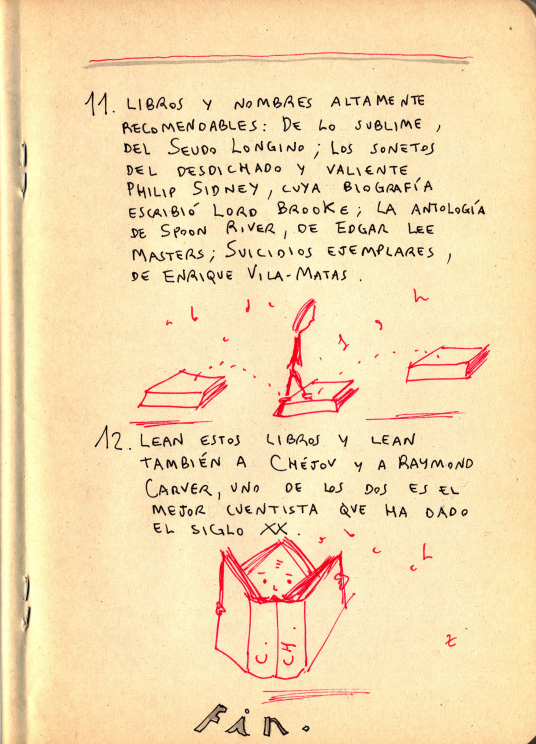 11. LIBROS Y NOMBRES ALTAMENTE
RECOMENDABLES: DE LO SUBLIME,
DEL SEUDO LONGINO; LOS SONETOS
DEL DESDICHADO Y VALIENTE
PHILIP SIDNEY, CUYA BIOGRAFÍA
ESCRIBIÓ LORD BROOKE; LA ANTOLOGÍA
DE SPOON RIVER, DE EDGAR LEE
MASTERS; SUICIDIOS EJEMPLARES,
DE ENRIQUE VILA-MATAS.
12. LEAN ESTOS LIBROS Y LEAN
TAMBIÉN A CHÉJOV Y A RAYMOND
CARVER, UNO DE LOS DOS ES EL
MEJOR CUENTISTA QUE HA DADO
EL SIGLO XX.
C. CH.
Fin.